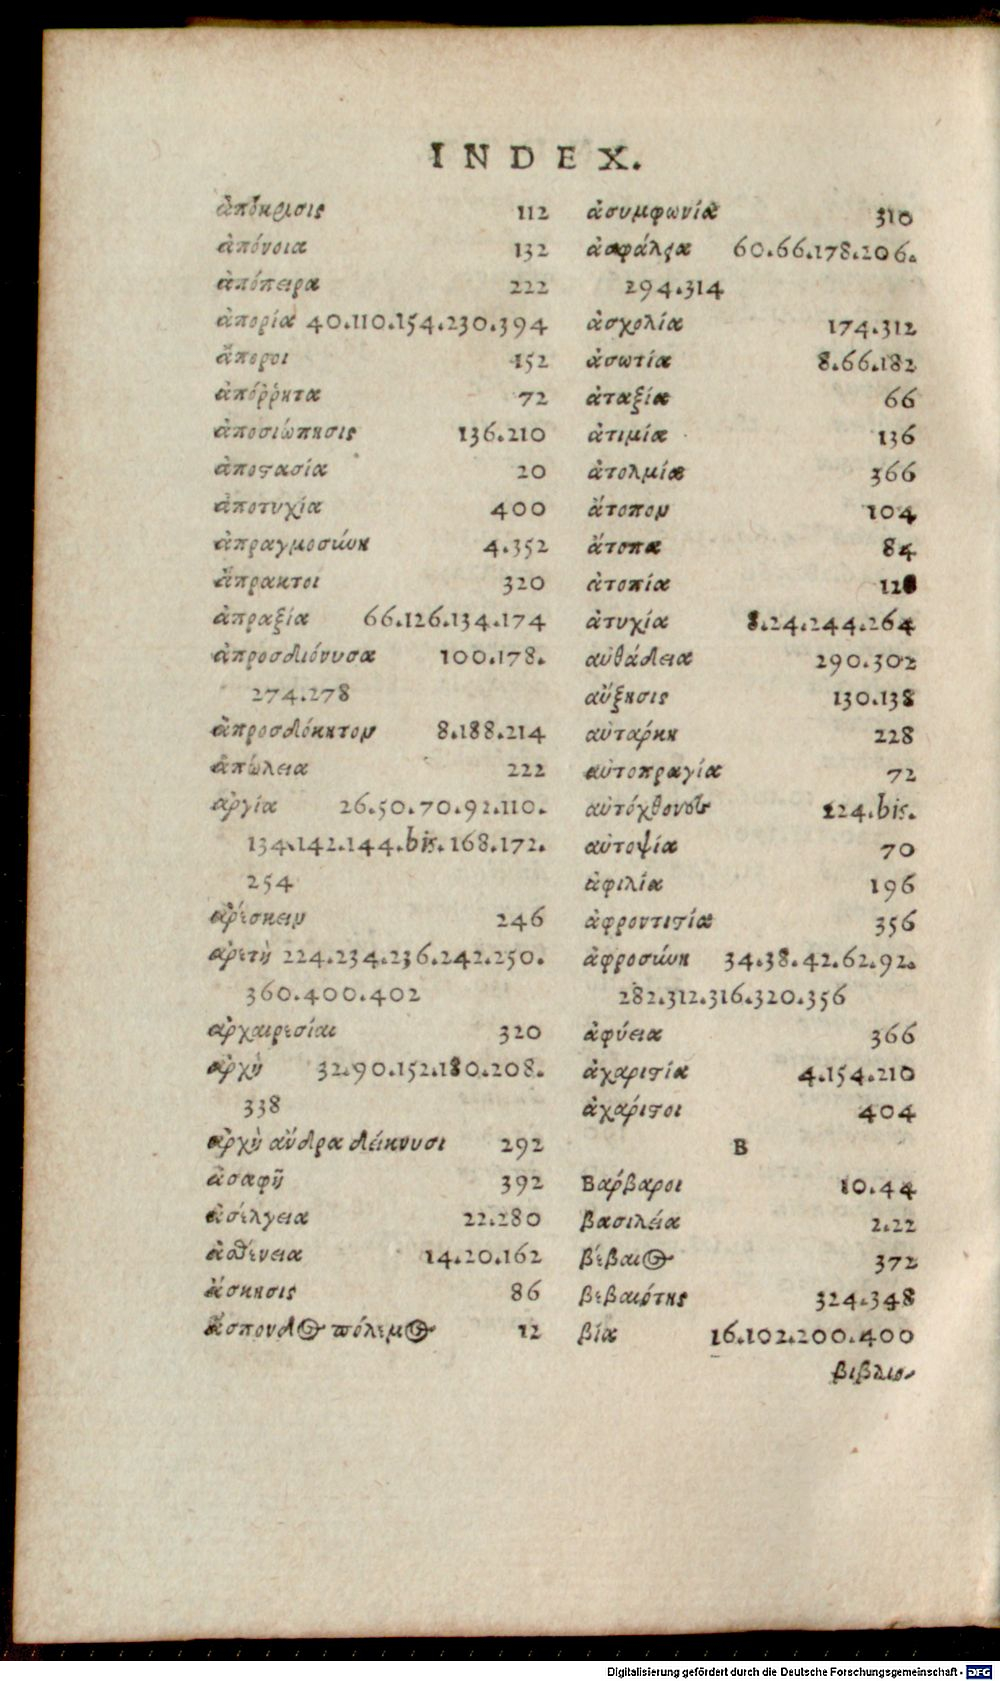 INDEX.
ἀπόκρισις 112
ἀπόνοια 132
ἀπόπειρα 222
ἀπορία 40.110.154.230.394
ἄποροι 152
ἀπόῤῥητα 72
ἀποσιώπησις 136.210
ἀποϛασία 20
ἀποτυχία 400
ἀπραγμοσύνη 4.352
ἄπρακτοι 320
ἀπραξία 66.126.134.174
ἀπροσδιόνυσα 100.178.
274.278
ἀπροσδόκητον 8.188.214
ἀπώλεια 222
ἀργία 26.50.70.92.110.
134.142.144.bis.168.172.
254
ἀρέσκειν 246
ἀρετὴ 224.234.236.242.250.
360.400.402
ἀρχαιρεσίαι 320
ἀρχὴ 32.90.152.180.208.
338
ἀρχὴ ἄνδρα δείκνυσι 292
ἀσαφῆ 392
ἀσέλγεια 22.280
ἀσθένεια 14.20.162
ἄσκησις 86
ἄσπονδος πόλεμος 12
ἀσυμφωνία 310
ἀσφάλεια 60.66.178.206.
294.314
ἀσχολία 174.312
ἀσωτία 8.66.182
ἀταξία 66
ἀτιμία 136
ἀτολμία 366
ἄτοπον 104
ἄτοπα 84
ἀτοπία
ἀτυχία 8.24.244.264
αὐθάδεια 290.302
αὔξησις 130.138
αὐτάρκη 228
αὐτοπραγία 72
αὐτόχθονες 124.bis.
αὐτοψία 70
ἀφιλία 196
ἀφροντιϛία 356
ἀφροσύνη 34.38.42.62.92.
282.312.316.320.356
ἀφύεια 366
ἀχαριϛία 4.154.210
ἀχάριϛοι 404
Β
Βάρβαροι 10.44
βασιλεία 2.22
βέβαιος 372
βεβαιότης 324.348
βία 16.102.200.400
βιβλιο-
Digitalisierung gefördert durch die Deutsche Forschungsgemeinschaft - DFG